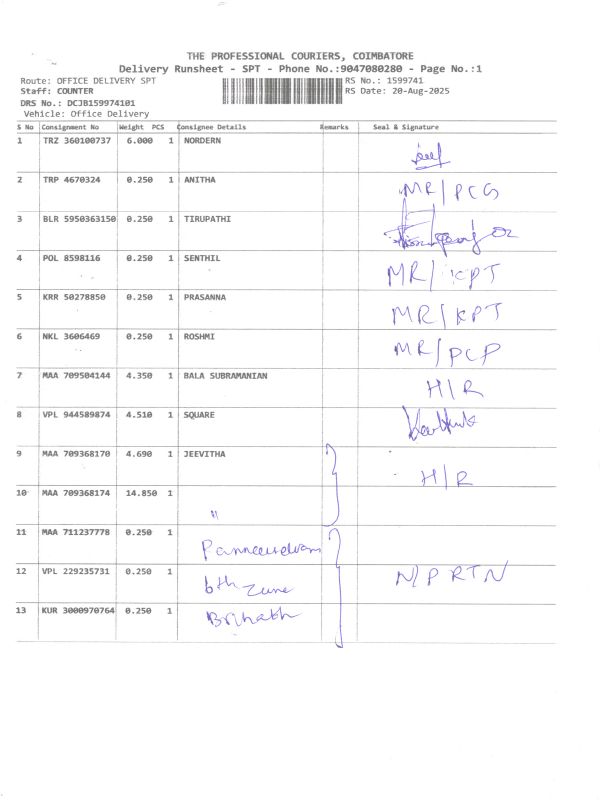 THE PROFESSIONAL COURIERS, COIMBATORE
Delivery Runsheet - SPT - Phone No.:9047080280 - Page No.:1
Route: OFFICE DELIVERY SPT RS No.: 1599741
Staff: COUNTER RS Date: 20-Aug-2025
DRS No.: DCJB159974101
Vehicle: Office Delivery
S No Consignment No Weight PCS Consignee Details Remarks Seal & Signature
1 TRZ 360100737 6.000 1 NORDERN
2 TRP 4670324 0.250 1 ANITHA MR/PCG
3 BLR 5950363150 0.250 1 TIRUPATHI
4 POL 8598116 0.250 1 SENTHIL MR/KPT
5 KRR 50278850 0.250 1 PRASANNA MR/KPT
6 NKL 3606469 0.250 1 ROSHMI MR/PCP
7 MAA 709504144 4.350 1 BALA SUBRAMANIAN H/R
8 VPL 944589874 4.510 1 SQUARE
9 MAA 709368170 4.690 1 JEEVITHA H/R
10 MAA 709368174 14.850 1 "
11 MAA 711237778 0.250 1 Panneerselvam
12 VPL 229235731 0.250 1 6th Zune N/P RTN
13 KUR 3000970764 0.250 1